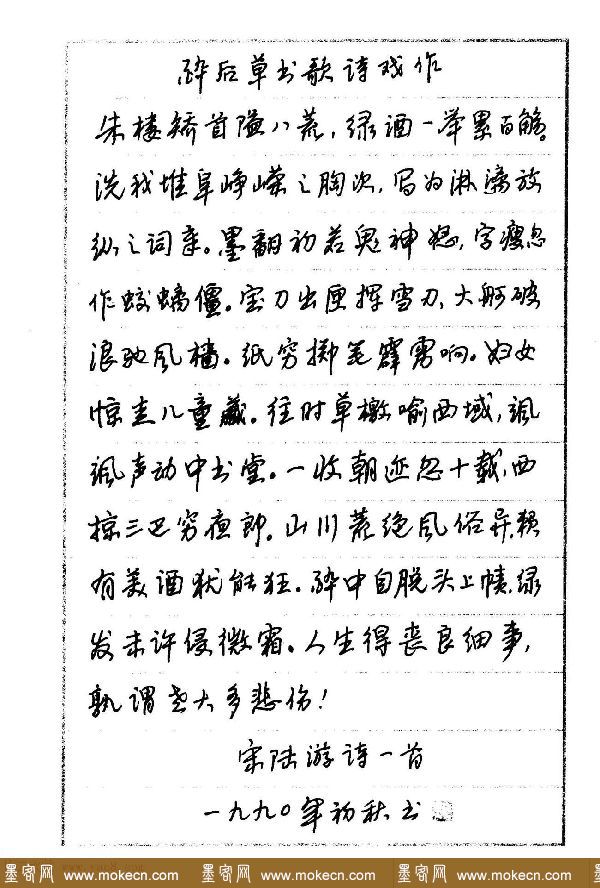 醉后草书歌诗戏作
朱楼矫首隘八荒,绿酒一举累百觞。
洗我堆阜峥嵘之胸次,写为淋漓放
纵之词章。墨翻初若鬼神怒,字瘦忽
作蛟螭僵。宝刀出匣挥雪刃,大舸破
浪驰风樯。纸穷掷笔霹雳响。妇女
惊走儿童藏。往时草檄喻西域,飒
飒声动中书堂。一收朝迹忽十载,西
掠三巴穷夜郎。山川荒绝风俗异,赖
有美酒犹能狂。醉中自脱头上帻,绿
发未许侵微霜。人生得丧良细事,
孰谓老大多悲伤!
宋陆游诗一首
一九九〇年初秋书
墨客网 www.mokecn.com 墨客网 www.mokecn.com 墨客网 www.mokecn.com 墨客网